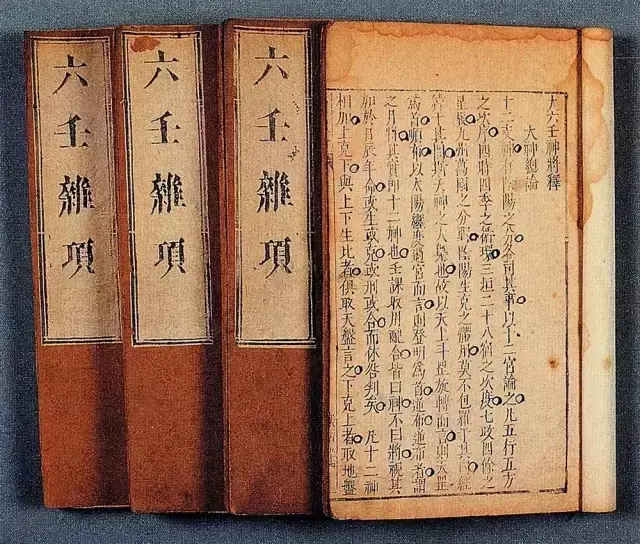 大六壬神將釋
大神總論
十二支神陰陽之各司其事以十二宮論之凡五行五方
之次序四時四季之循環三垣二十八宿之次度七政四餘之
星躔九州萬國之分野陰陽生克之體用莫不包羅于其經
管于其間將天神之人也故以天上斗罡旋轉而言則天罡
為首順佈以太陽躔度過宮而言則登明為首逆佈逆布者謂
之月將其實即十二神也壬課取用配合皆曰神不曰將視其
加於日辰年命或生或克或刑或合而休咎判矣 凡十二神
相加上克下與上下生比者俱取天盤言之下克上者取地盤
六壬雜項
六壬雜項
六壬雜項